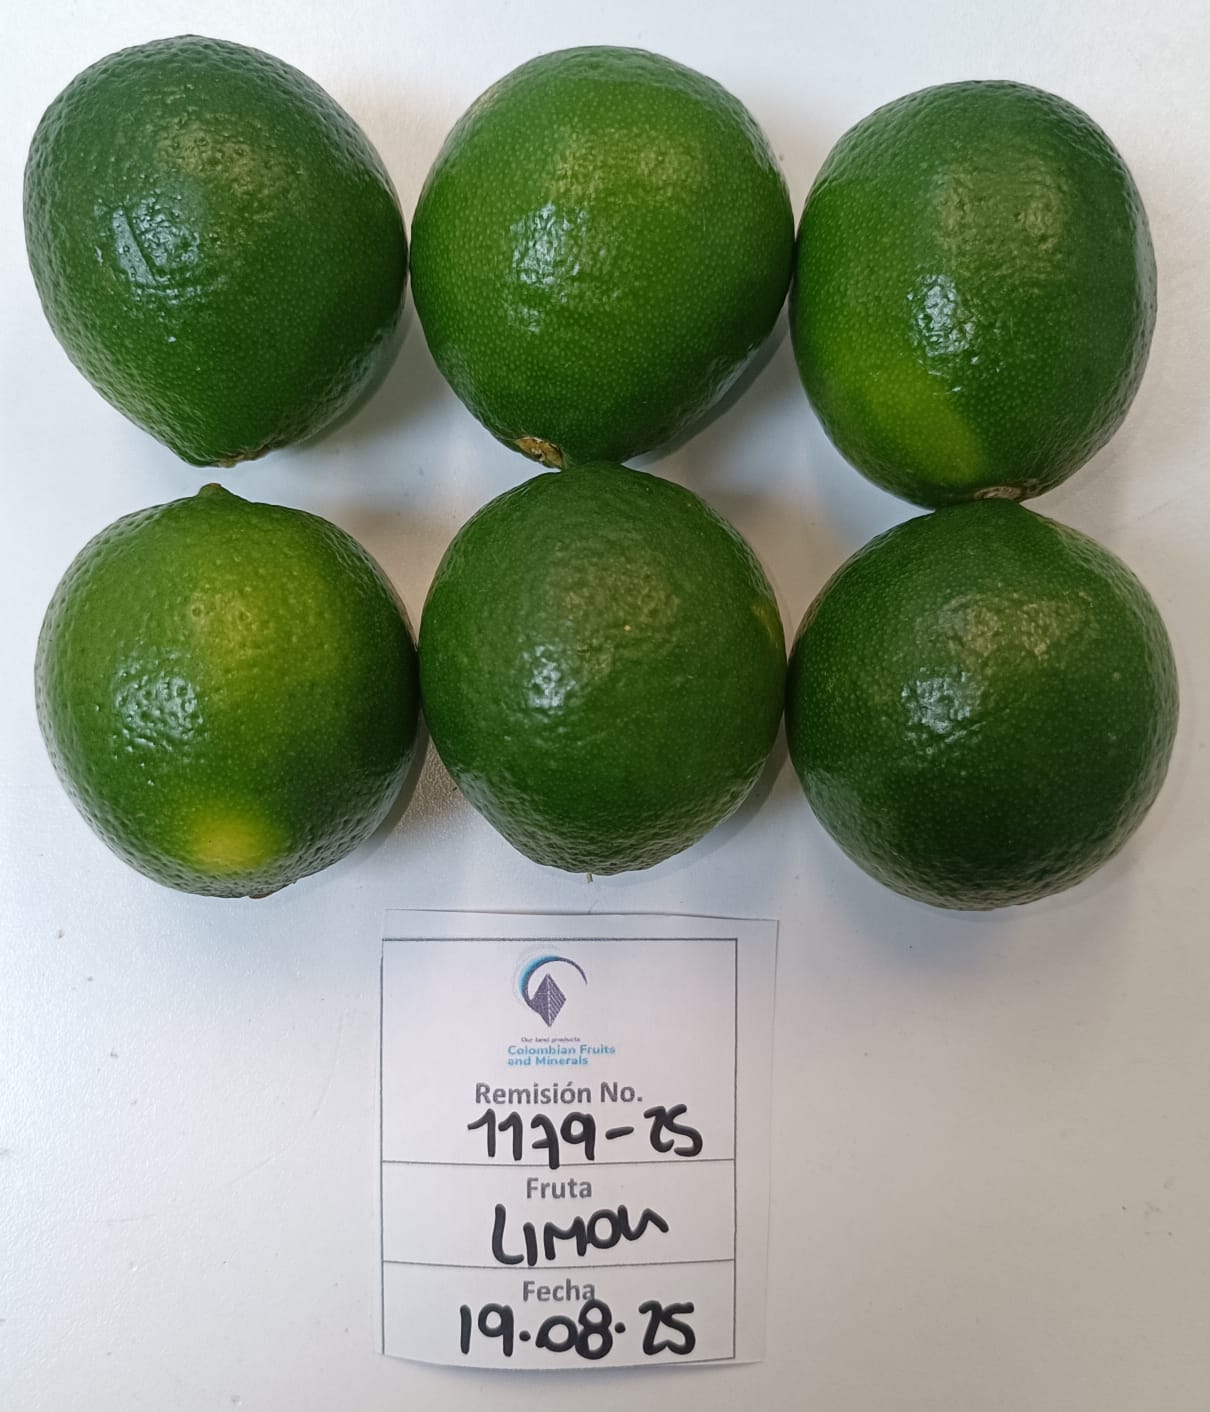 Our land products
Colombian Fruits
and Minerals
Remisión No.
1179-25
Fruta
LIMON
Fecha
19.08.25